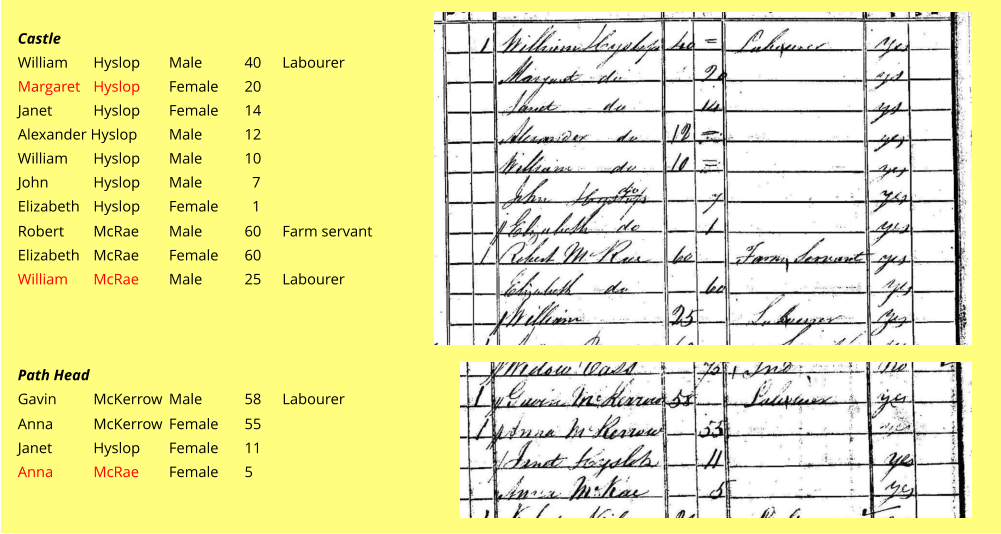 Castle
William Hyslop Male 40 Labourer
Margaret Hyslop Female 20
Janet Hyslop Female 14
Alexander Hyslop Male 12
William Hyslop Male 10
John Hyslop Male 7
Elizabeth Hyslop Female 1
Robert McRae Male 60 Farm servant
Elizabeth McRae Female 60
William McRae Male 25 Labourer
Path Head
Gavin McKerrow Male 58 Labourer
Anna McKerrow Female 55
Janet Hyslop Female 11
Anna McRae Female 5
1 William Hyslop 40 = Labourer yes
Margaret do 20 yes
Janet do 14 yes
Alexander do 12 = yes
William do 10 = yes
John Hyslop do 7 yes
Elizabeth do 1 yes
1 Robert McRae 60 Farm Servant yes
Elizabeth do 60 yes
William 25 Labourer yes
Widow Cass 75 Ind no
1 Gavin McKerrow 58 Labourer yes
1 Anna McKerrow 55
Janet Hyslop 11 yes
Anna McRae 5 yes